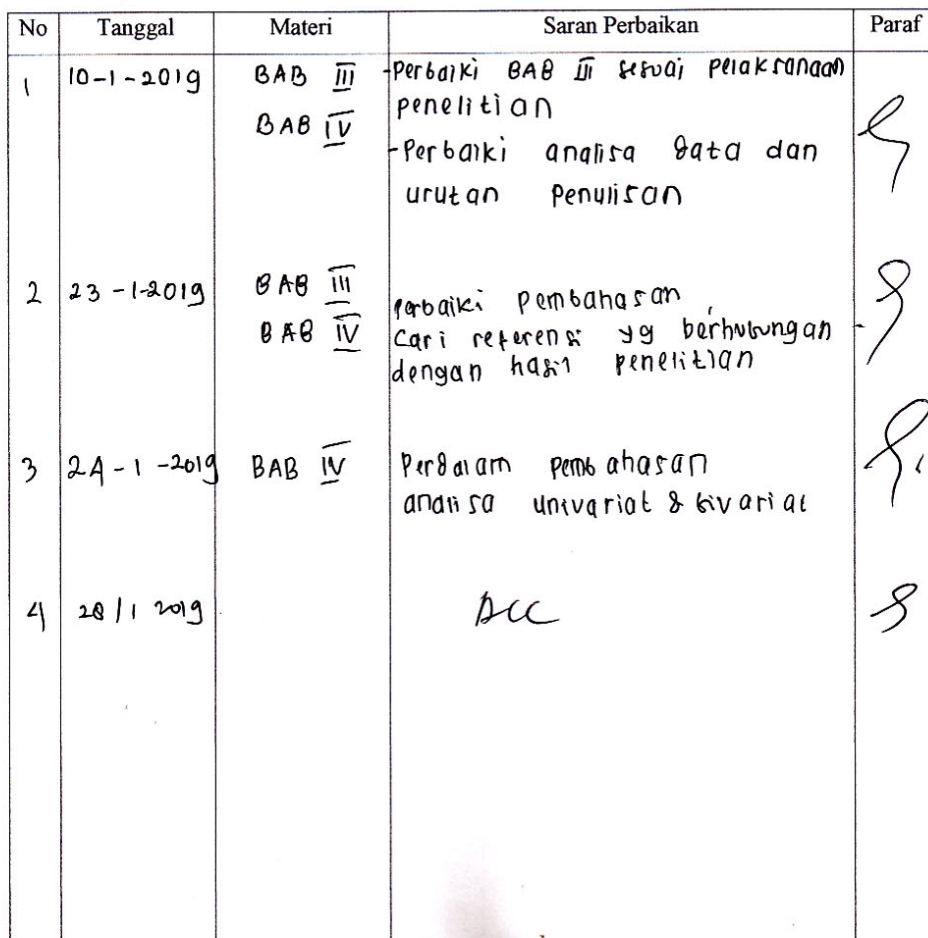 No Tanggal Materi Saran Perbaikan Paraf
1 10-1-2019 BAB III -Perbaiki BAB III sesuai pelaksanaan
penelitian
BAB IV
-Perbaiki analisa data dan
urutan Penulisan
2 23-1-2019 BAB III Perbaiki Pembahasan
BAB IV Cari referensi yg berhubungan
dengan hasil penelitian
3 24-1-2019 BAB IV Perdalam pembahasan
analisa univariat & bivariat
4 28/1 2019 ACC